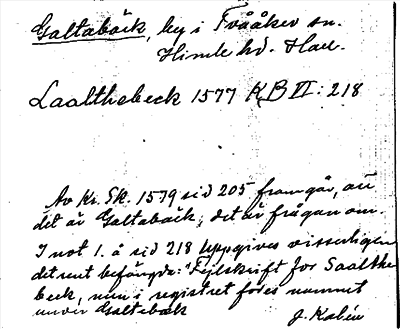 Galtabäck, by i Tvååker sn.
Himle hd. Hall.
Laalthebeck 1577 KB VI: 218
Av Kr. Sk. 1579 sid 205 framgår, att
det är Galtabäck, det är frågan om.
I not 1. å sid 218 uppgives visserligen
det rent befängda: "Fejlskrift for Saalthe
beck, men i registret föres namnet
under Galtebäk J. Kalén